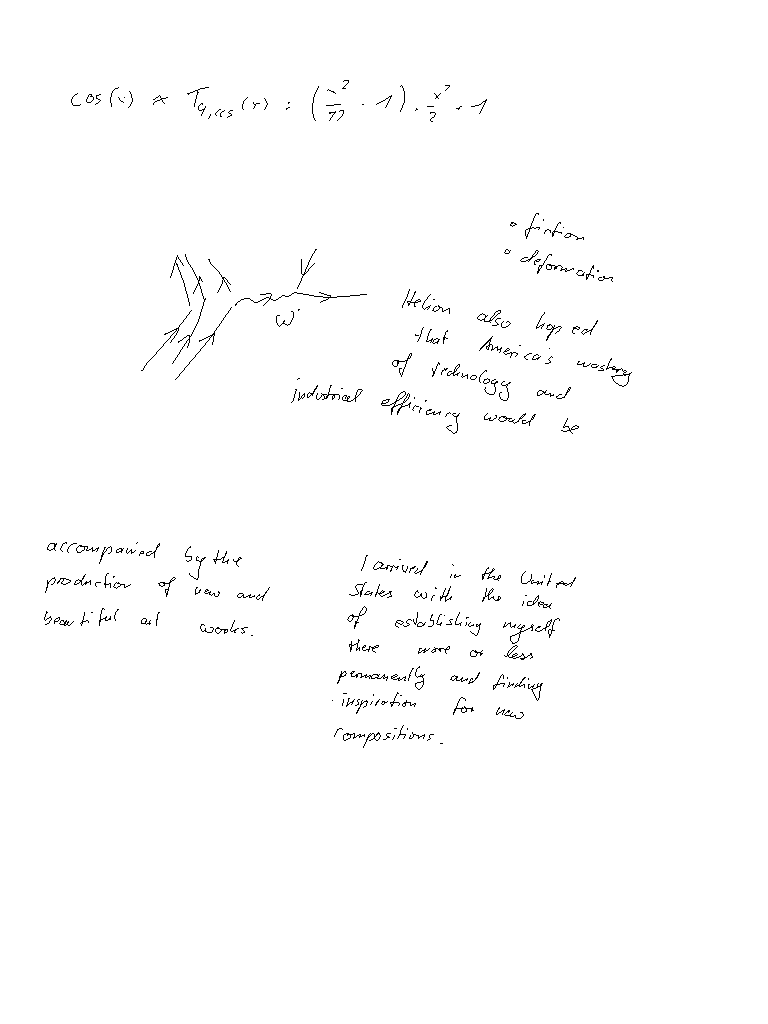 cos(x) ≈ T₄,cos(x) = (x²/12 - 1) · x²/2 + 1
• friction
• deformation
W
Helion also hoped
that America's mastery
of technology and
industrial efficiency would be
accompanied by the
production of new and
beautiful art works.
I arrived in the United
States with the idea
of establishing myself
there more or less
permanently and finding
inspiration for new
compositions.